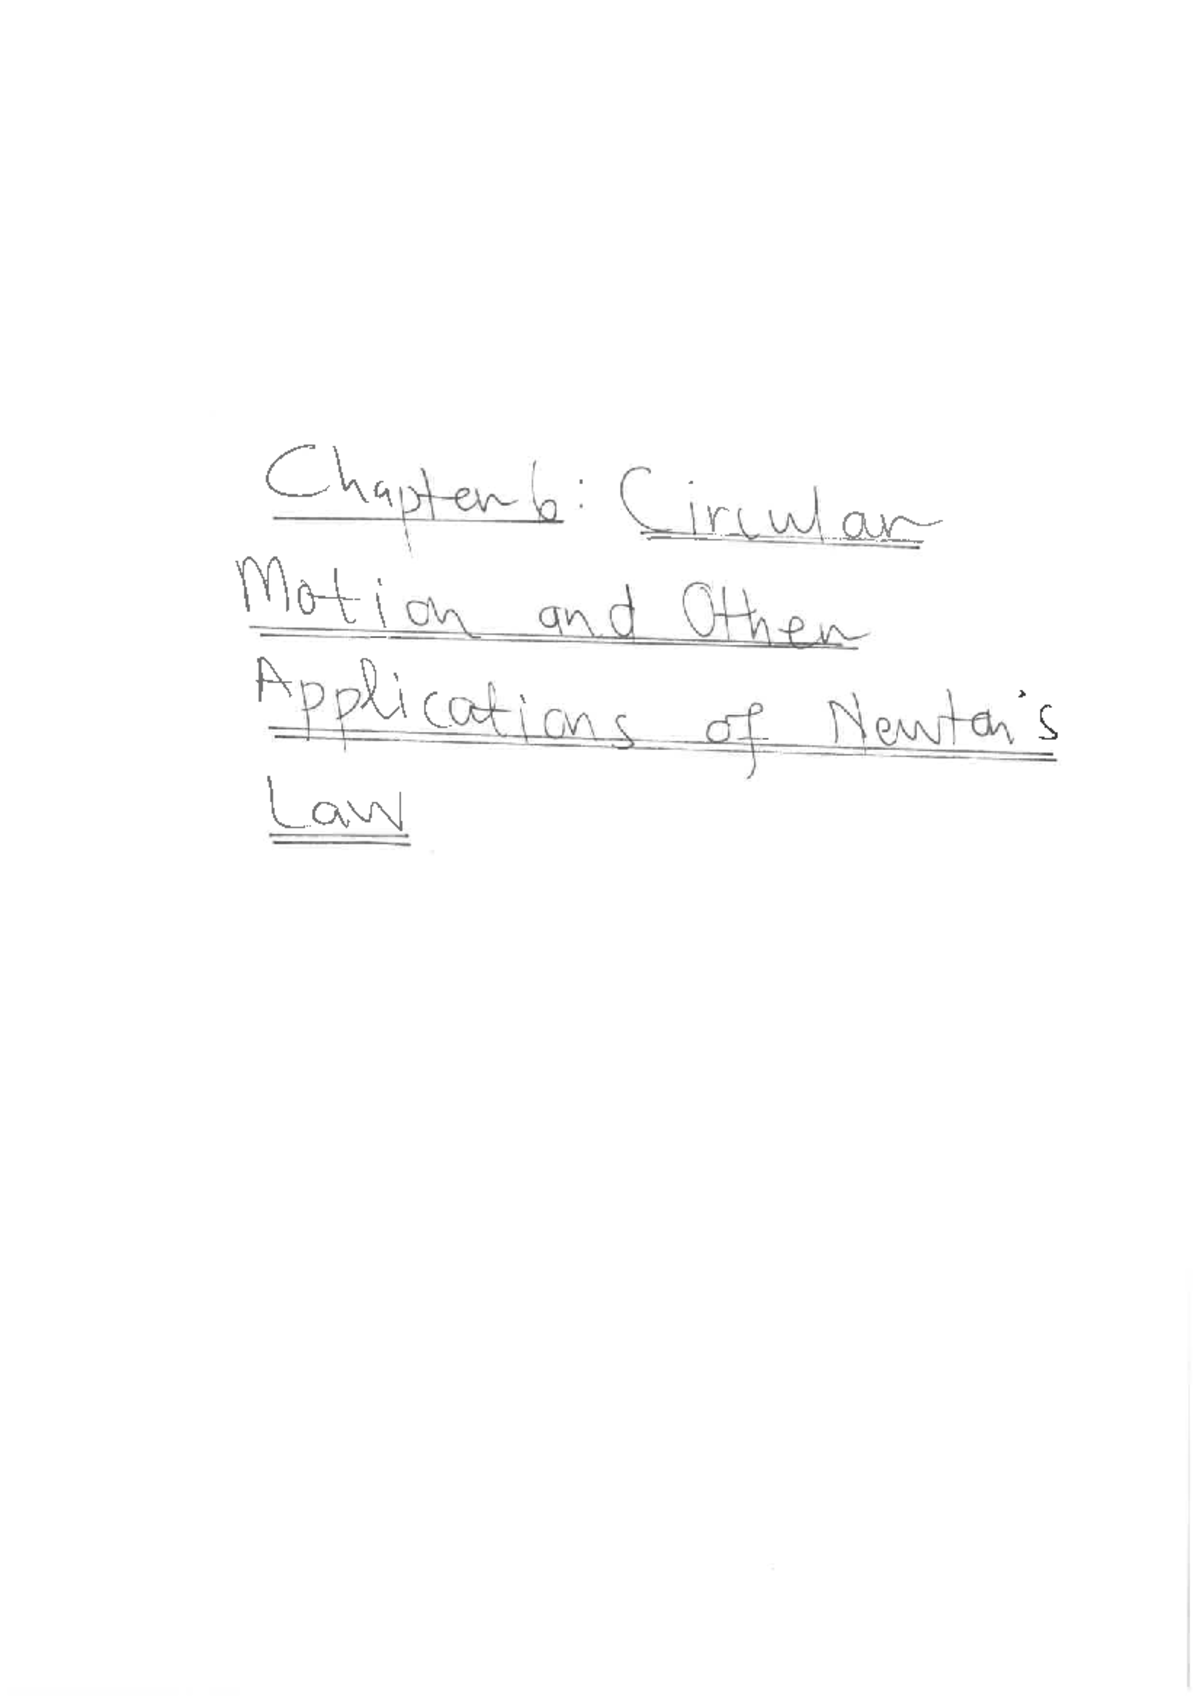 Chapter 6: Circular
Motion and Other
Applications of Newton's
Law